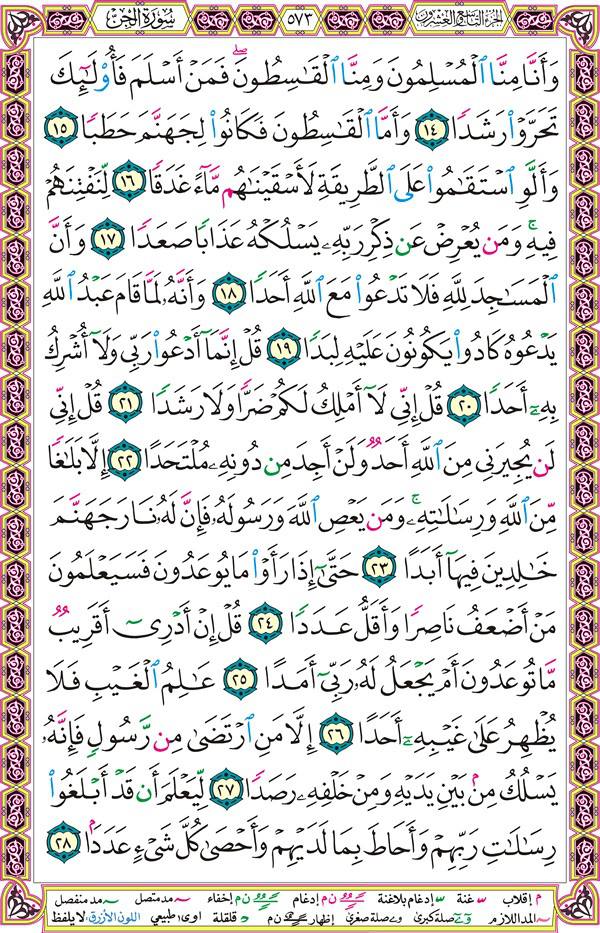 الجزء التاسع والعشرون ٥٧٣ سورة الجن
وَأَنَّا مِنَّا ٱلْمُسْلِمُونَ وَمِنَّا ٱلْقَٰسِطُونَ ۖ فَمَنْ أَسْلَمَ فَأُو۟لَٰٓئِكَ
تَحَرَّوْا۟ رَشَدًا ١٤ وَأَمَّا ٱلْقَٰسِطُونَ فَكَانُوا۟ لِجَهَنَّمَ حَطَبًا ١٥
وَأَلَّوِ ٱسْتَقَٰمُوا۟ عَلَى ٱلطَّرِيقَةِ لَأَسْقَيْنَٰهُم مَّآءً غَدَقًا ١٦ لِّنَفْتِنَهُمْ
فِيهِ ۚ وَمَن يُعْرِضْ عَن ذِكْرِ رَبِّهِۦ يَسْلُكْهُ عَذَابًا صَعَدًا ١٧ وَأَنَّ
ٱلْمَسَٰجِدَ لِلَّهِ فَلَا تَدْعُوا۟ مَعَ ٱللَّهِ أَحَدًا ١٨ وَأَنَّهُۥ لَمَّا قَامَ عَبْدُ ٱللَّهِ
يَدْعُوهُ كَادُوا۟ يَكُونُونَ عَلَيْهِ لِبَدًا ١٩ قُلْ إِنَّمَآ أَدْعُوا۟ رَبِّى وَلَآ أُشْرِكُ
بِهِۦٓ أَحَدًا ٢٠ قُلْ إِنِّى لَآ أَمْلِكُ لَكُمْ ضَرًّا وَلَا رَشَدًا ٢١ قُلْ إِنِّى
لَن يُجِيرَنِى مِنَ ٱللَّهِ أَحَدٌ وَلَنْ أَجِدَ مِن دُونِهِۦ مُلْتَحَدًا ٢٢ إِلَّا بَلَٰغًا
مِّنَ ٱللَّهِ وَرِسَٰلَٰتِهِۦ ۚ وَمَن يَعْصِ ٱللَّهَ وَرَسُولَهُۥ فَإِنَّ لَهُۥ نَارَ جَهَنَّمَ
خَٰلِدِينَ فِيهَآ أَبَدًا ٢٣ حَتَّىٰٓ إِذَا رَأَوْا۟ مَا يُوعَدُونَ فَسَيَعْلَمُونَ
مَنْ أَضْعَفُ نَاصِرًا وَأَقَلُّ عَدَدًا ٢٤ قُلْ إِنْ أَدْرِىٓ أَقَرِيبٌ
مَّا تُوعَدُونَ أَمْ يَجْعَلُ لَهُۥ رَبِّىٓ أَمَدًا ٢٥ عَٰلِمُ ٱلْغَيْبِ فَلَا
يُظْهِرُ عَلَىٰ غَيْبِهِۦٓ أَحَدًا ٢٦ إِلَّا مَنِ ٱرْتَضَىٰ مِن رَّسُولٍ فَإِنَّهُۥ
يَسْلُكُ مِنۢ بَيْنِ يَدَيْهِ وَمِنْ خَلْفِهِۦ رَصَدًا ٢٧ لِّيَعْلَمَ أَن قَدْ أَبْلَغُوا۟
رِسَٰلَٰتِ رَبِّهِمْ وَأَحَاطَ بِمَا لَدَيْهِمْ وَأَحْصَىٰ كُلَّ شَىْءٍ عَدَدًۢا ٢٨
م إقلاب غنة إدغام بلاغنة ن م إدغام ن م إخفاء مد متصل مد منفصل
المد اللازم صلة كبرى صلة صغرى إظهار ن م قلقلة اوى طبيعي اللون الأزرق لا يلفظ